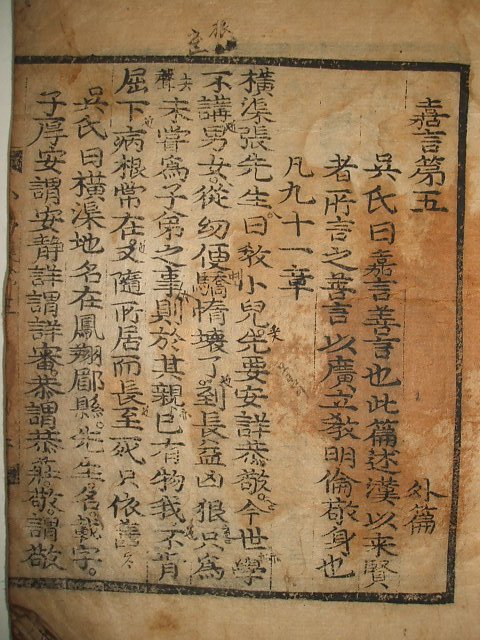 嘉言第五 外篇
吳氏曰嘉言善言也此篇述漢以來賢
者所言之善言以廣立敎明倫敬身也
凡九十一章
橫渠張先生曰敎小兒先要安詳恭敬今世學
不講男女從幼便驕惰壞了到長益凶狠只爲
未嘗爲子弟之事則於其親已有物我不肯
屈下病根常在又隨所居而長至死只依舊
吳氏曰橫渠地名在鳳翔郿縣先生名載字
子厚安謂安靜詳謂詳審恭謂恭莊敬謂敬